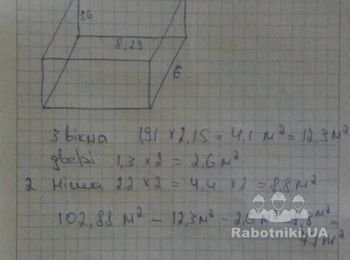 36
8,29
6
3 вікна 1,91 × 2,15 = 4.1 м² = 12,3 м²
двері 1,3 × 2 = 2.6 м²
2 ніша 2.2 × 2 = 4.4 × 2 = 8.8 м²
102,88 м² - 12,3 м² - 2,6 м² 8,8 м²
м²
Rabotniki.UA